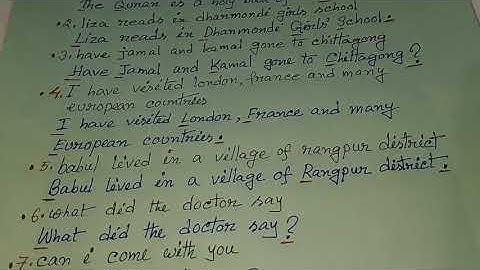 The Quran is a holy
·2. liza reads in dhanmondi girls school
Liza reads in Dhanmondi Girls' School.
·3. have jamal and kamal gone to chittagong
Have Jamal and Kamal gone to Chittagong?
·4. I have visited london, france and many
european countries
I have visited London, France and many
European countries.
·5. babul lived in a village of rangpur district
Babul lived in a village of Rangpur district.
·6. what did the doctor say
What did the doctor say?
·7. can i come with you